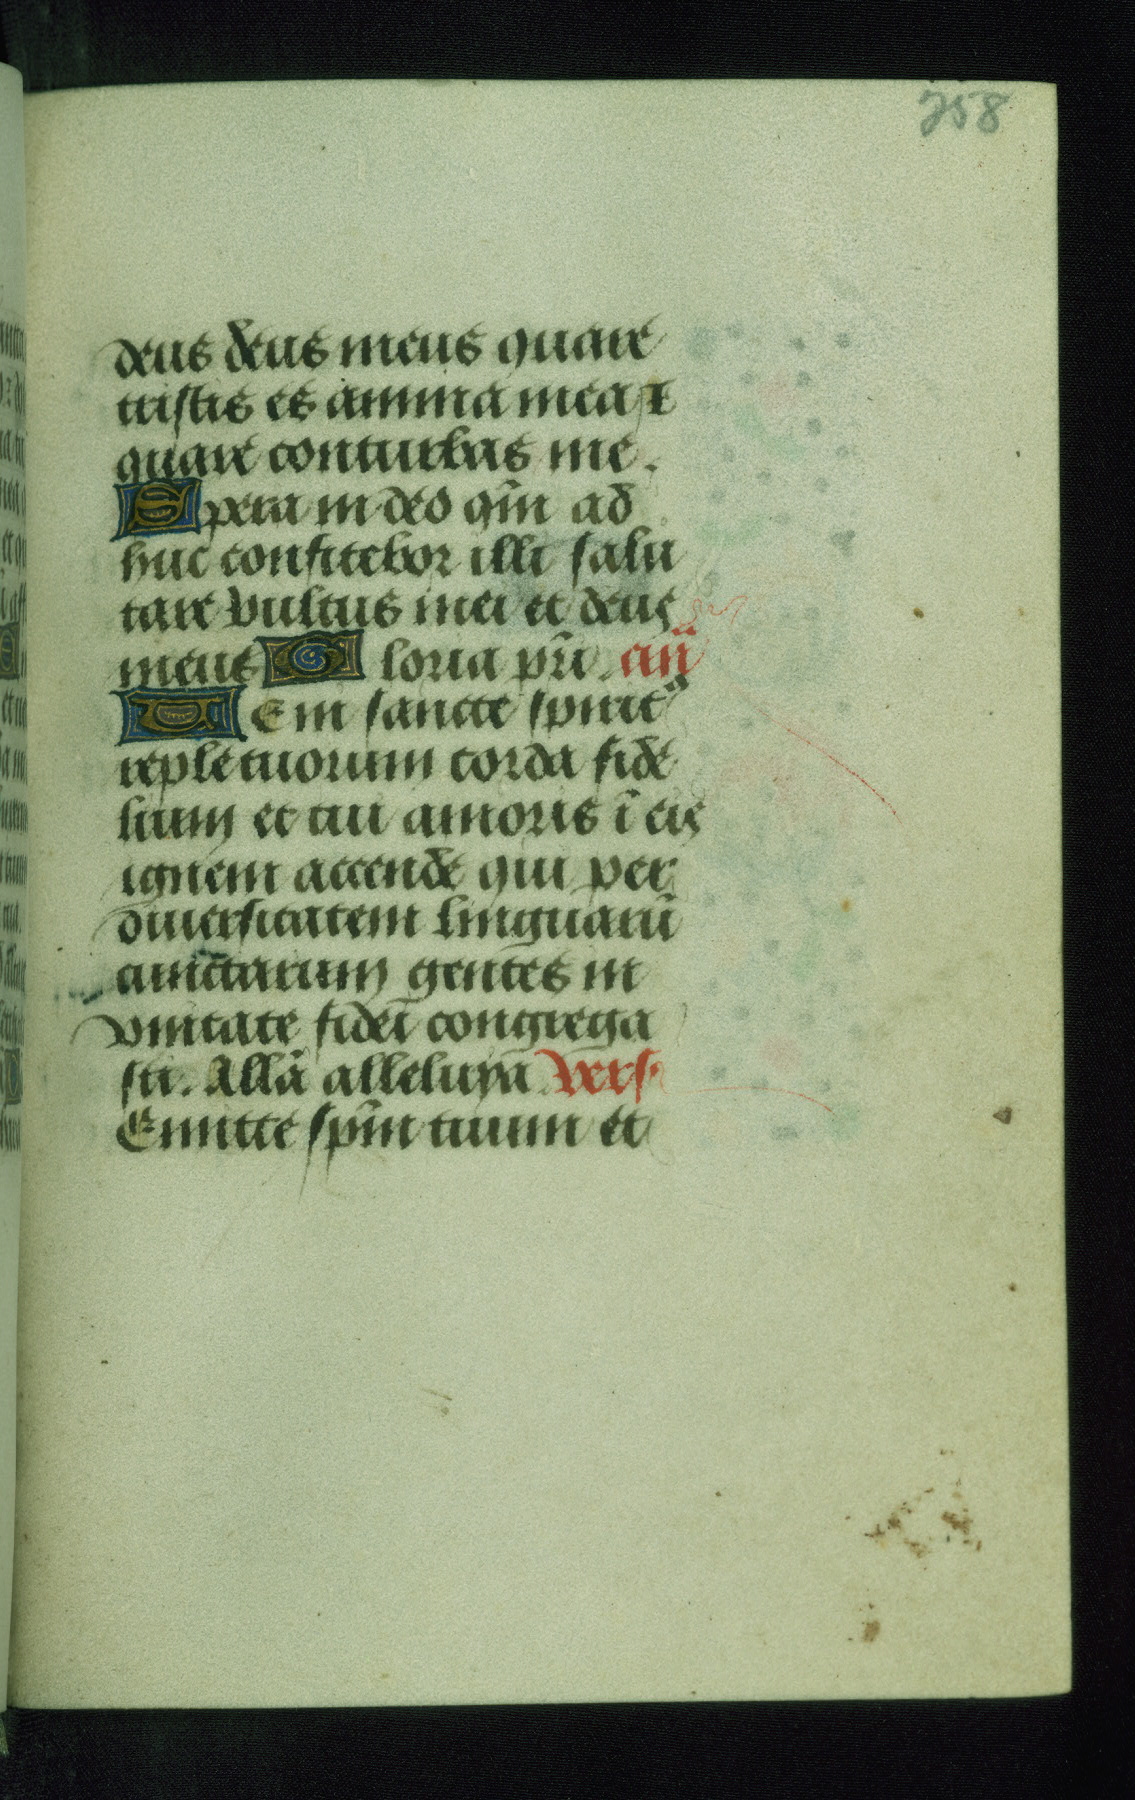 258
deus deus meus quare
tristis es amima mea ⁊
quare conturbas me.
Spera in deo qm̄ ad
huc confitebor illi salu
tare vultus mei et deus
meus Gloria pr̄i. an̄
UEni sancte spiritꝰ
reple tuorum corda fide
lium et tui amoris ī eis
ignem accende qui per
diuersitatem linguarū
cunctarum gentes in
vnitate fidei congrega
sti. Allā alleluya Vers.
Emitte spm̄ tuum et